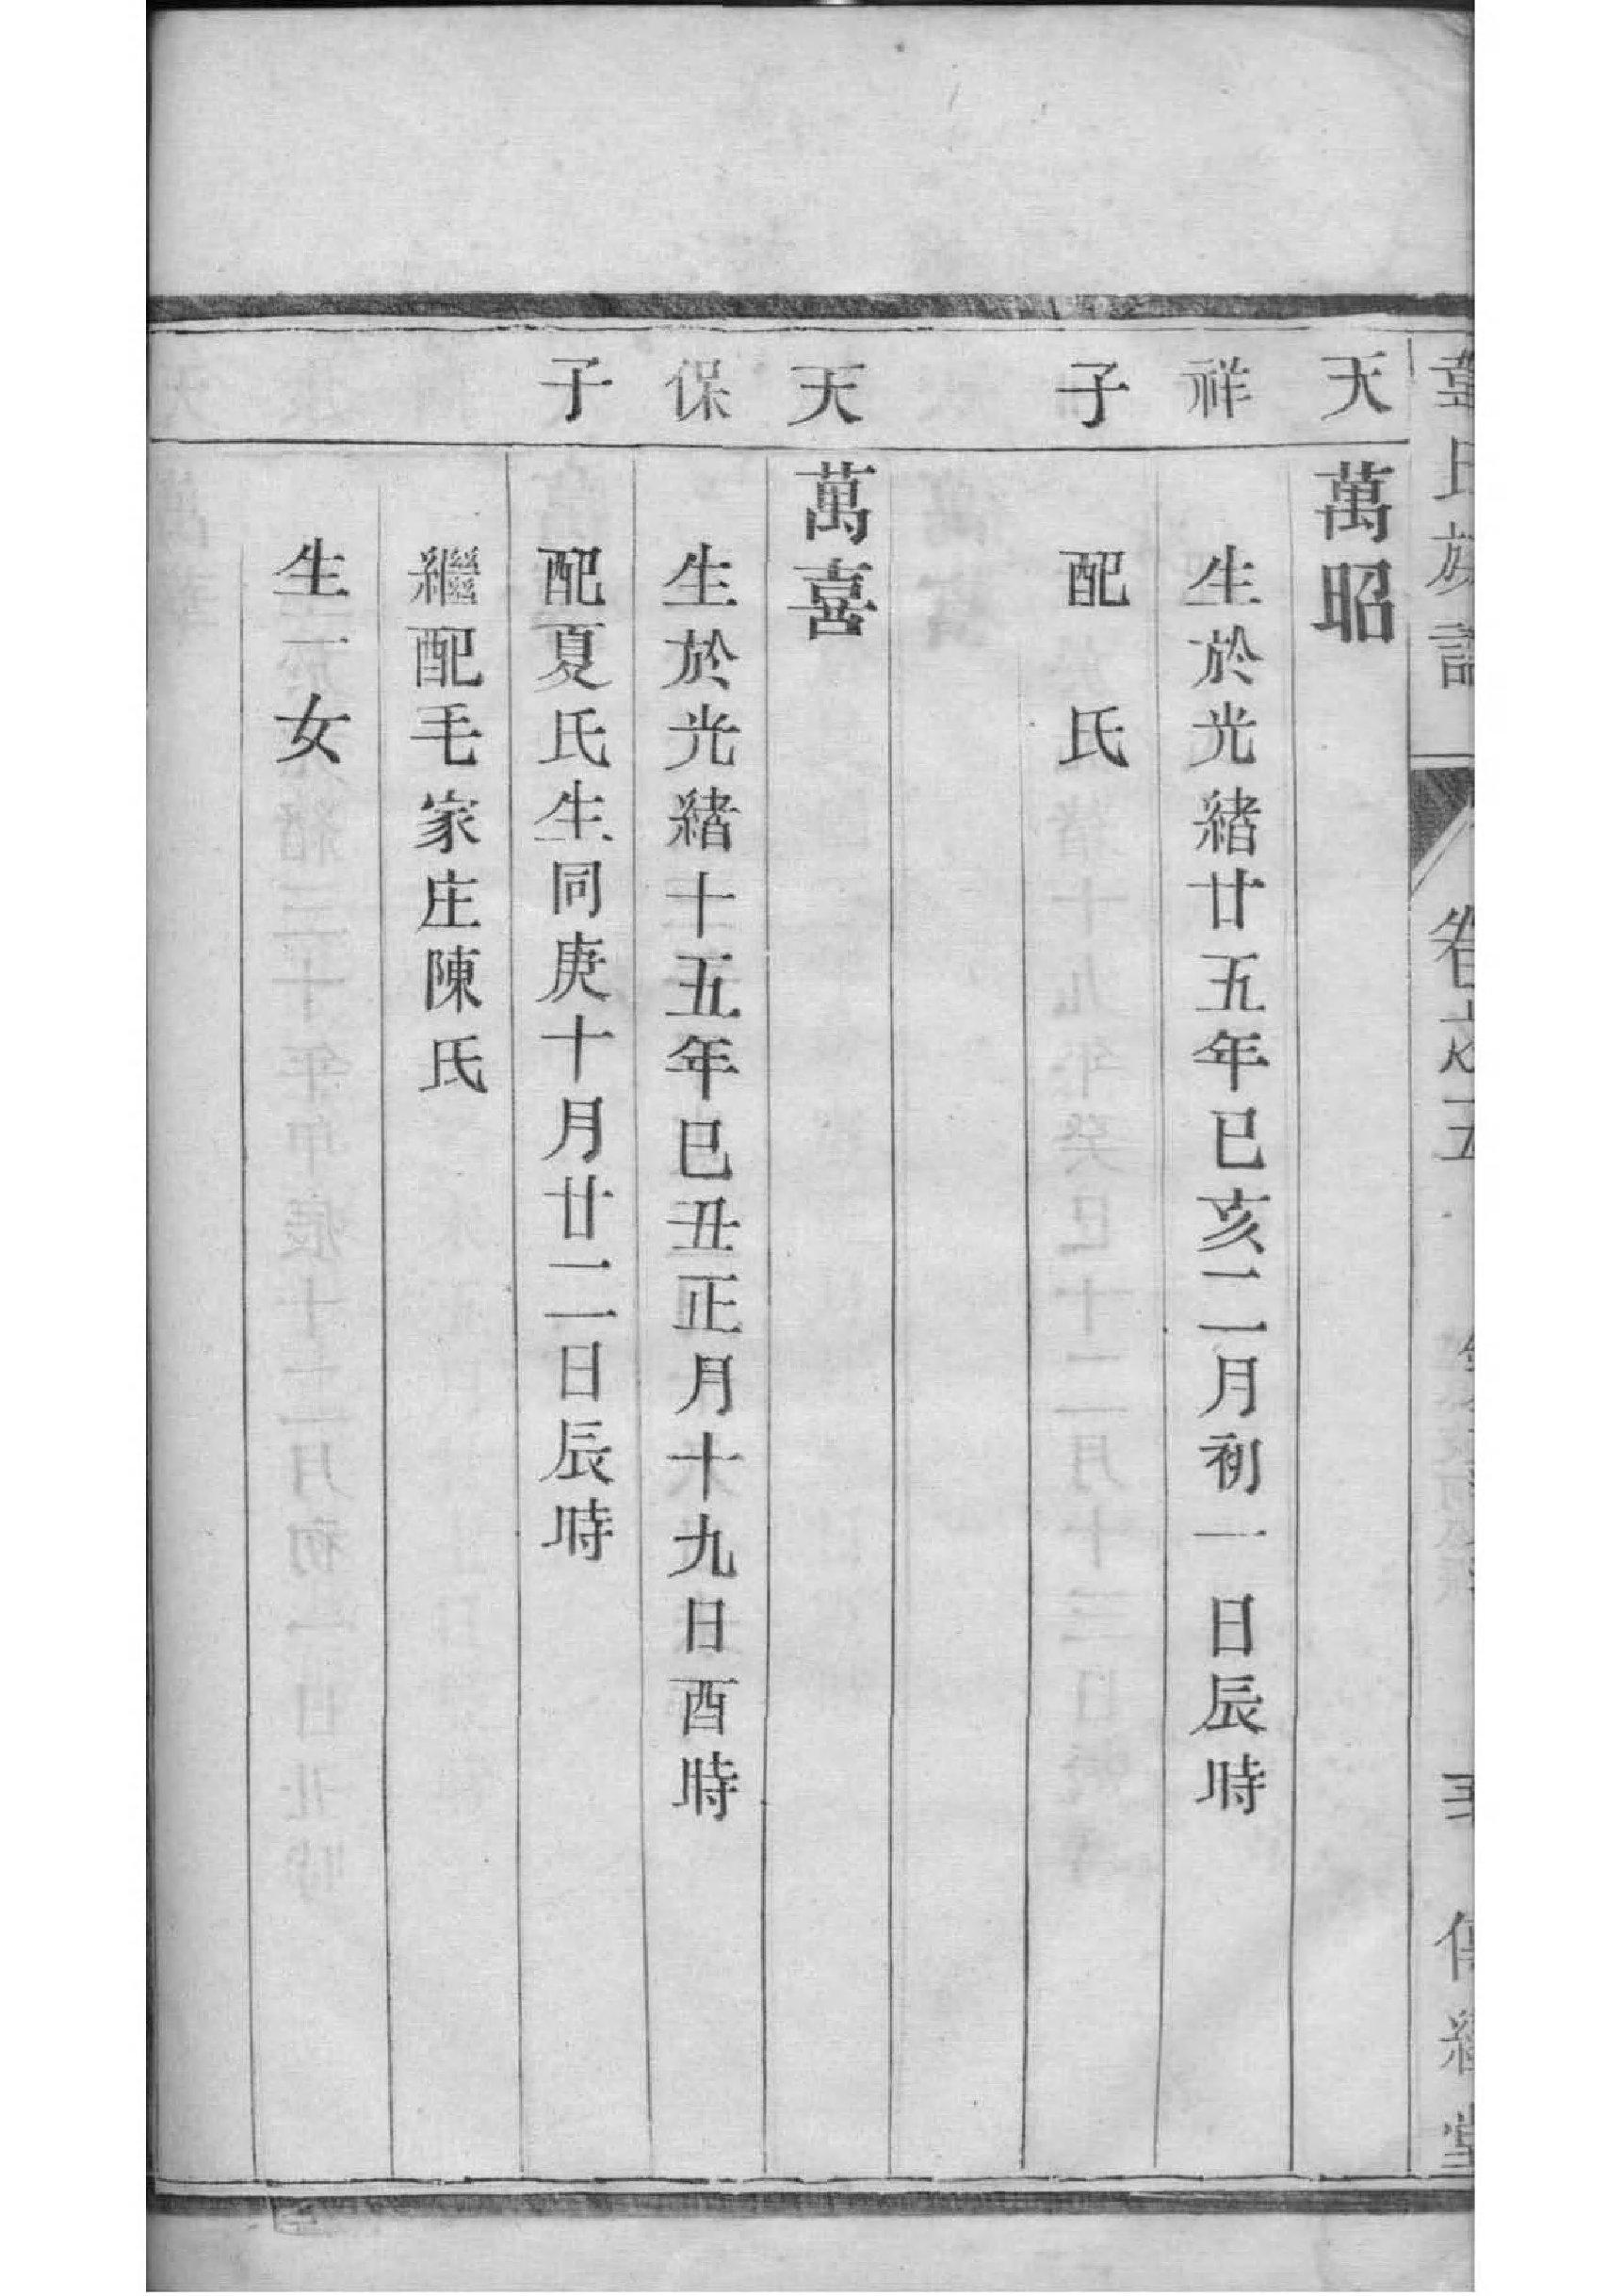 氏族譜 卷之五
天祥子
萬昭
生於光緒廿五年已亥二月初一日辰時
配 氏
天保子
萬喜
生於光緒十五年巳丑正月十九日酉時
配夏氏生同庚十月廿二日辰時
繼配毛家庄陳氏
生一女